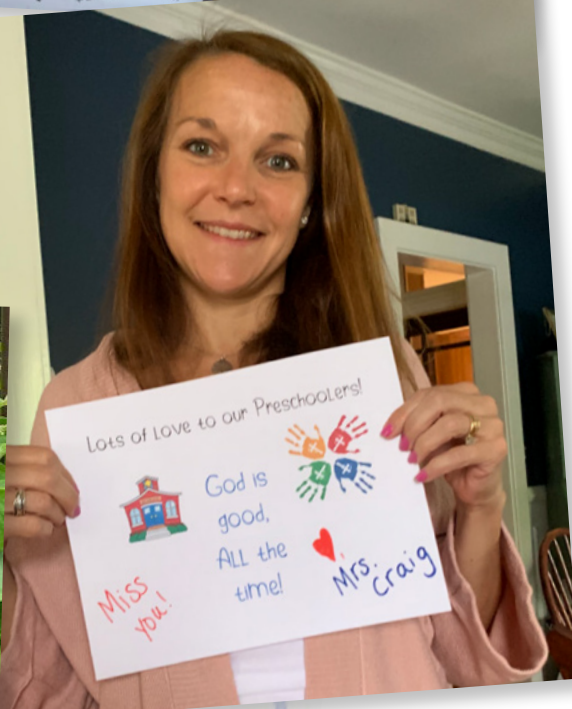 Lots of Love to our Preschoolers!
God is
good,
ALL the
time!
Miss
you!
Mrs.
Craig